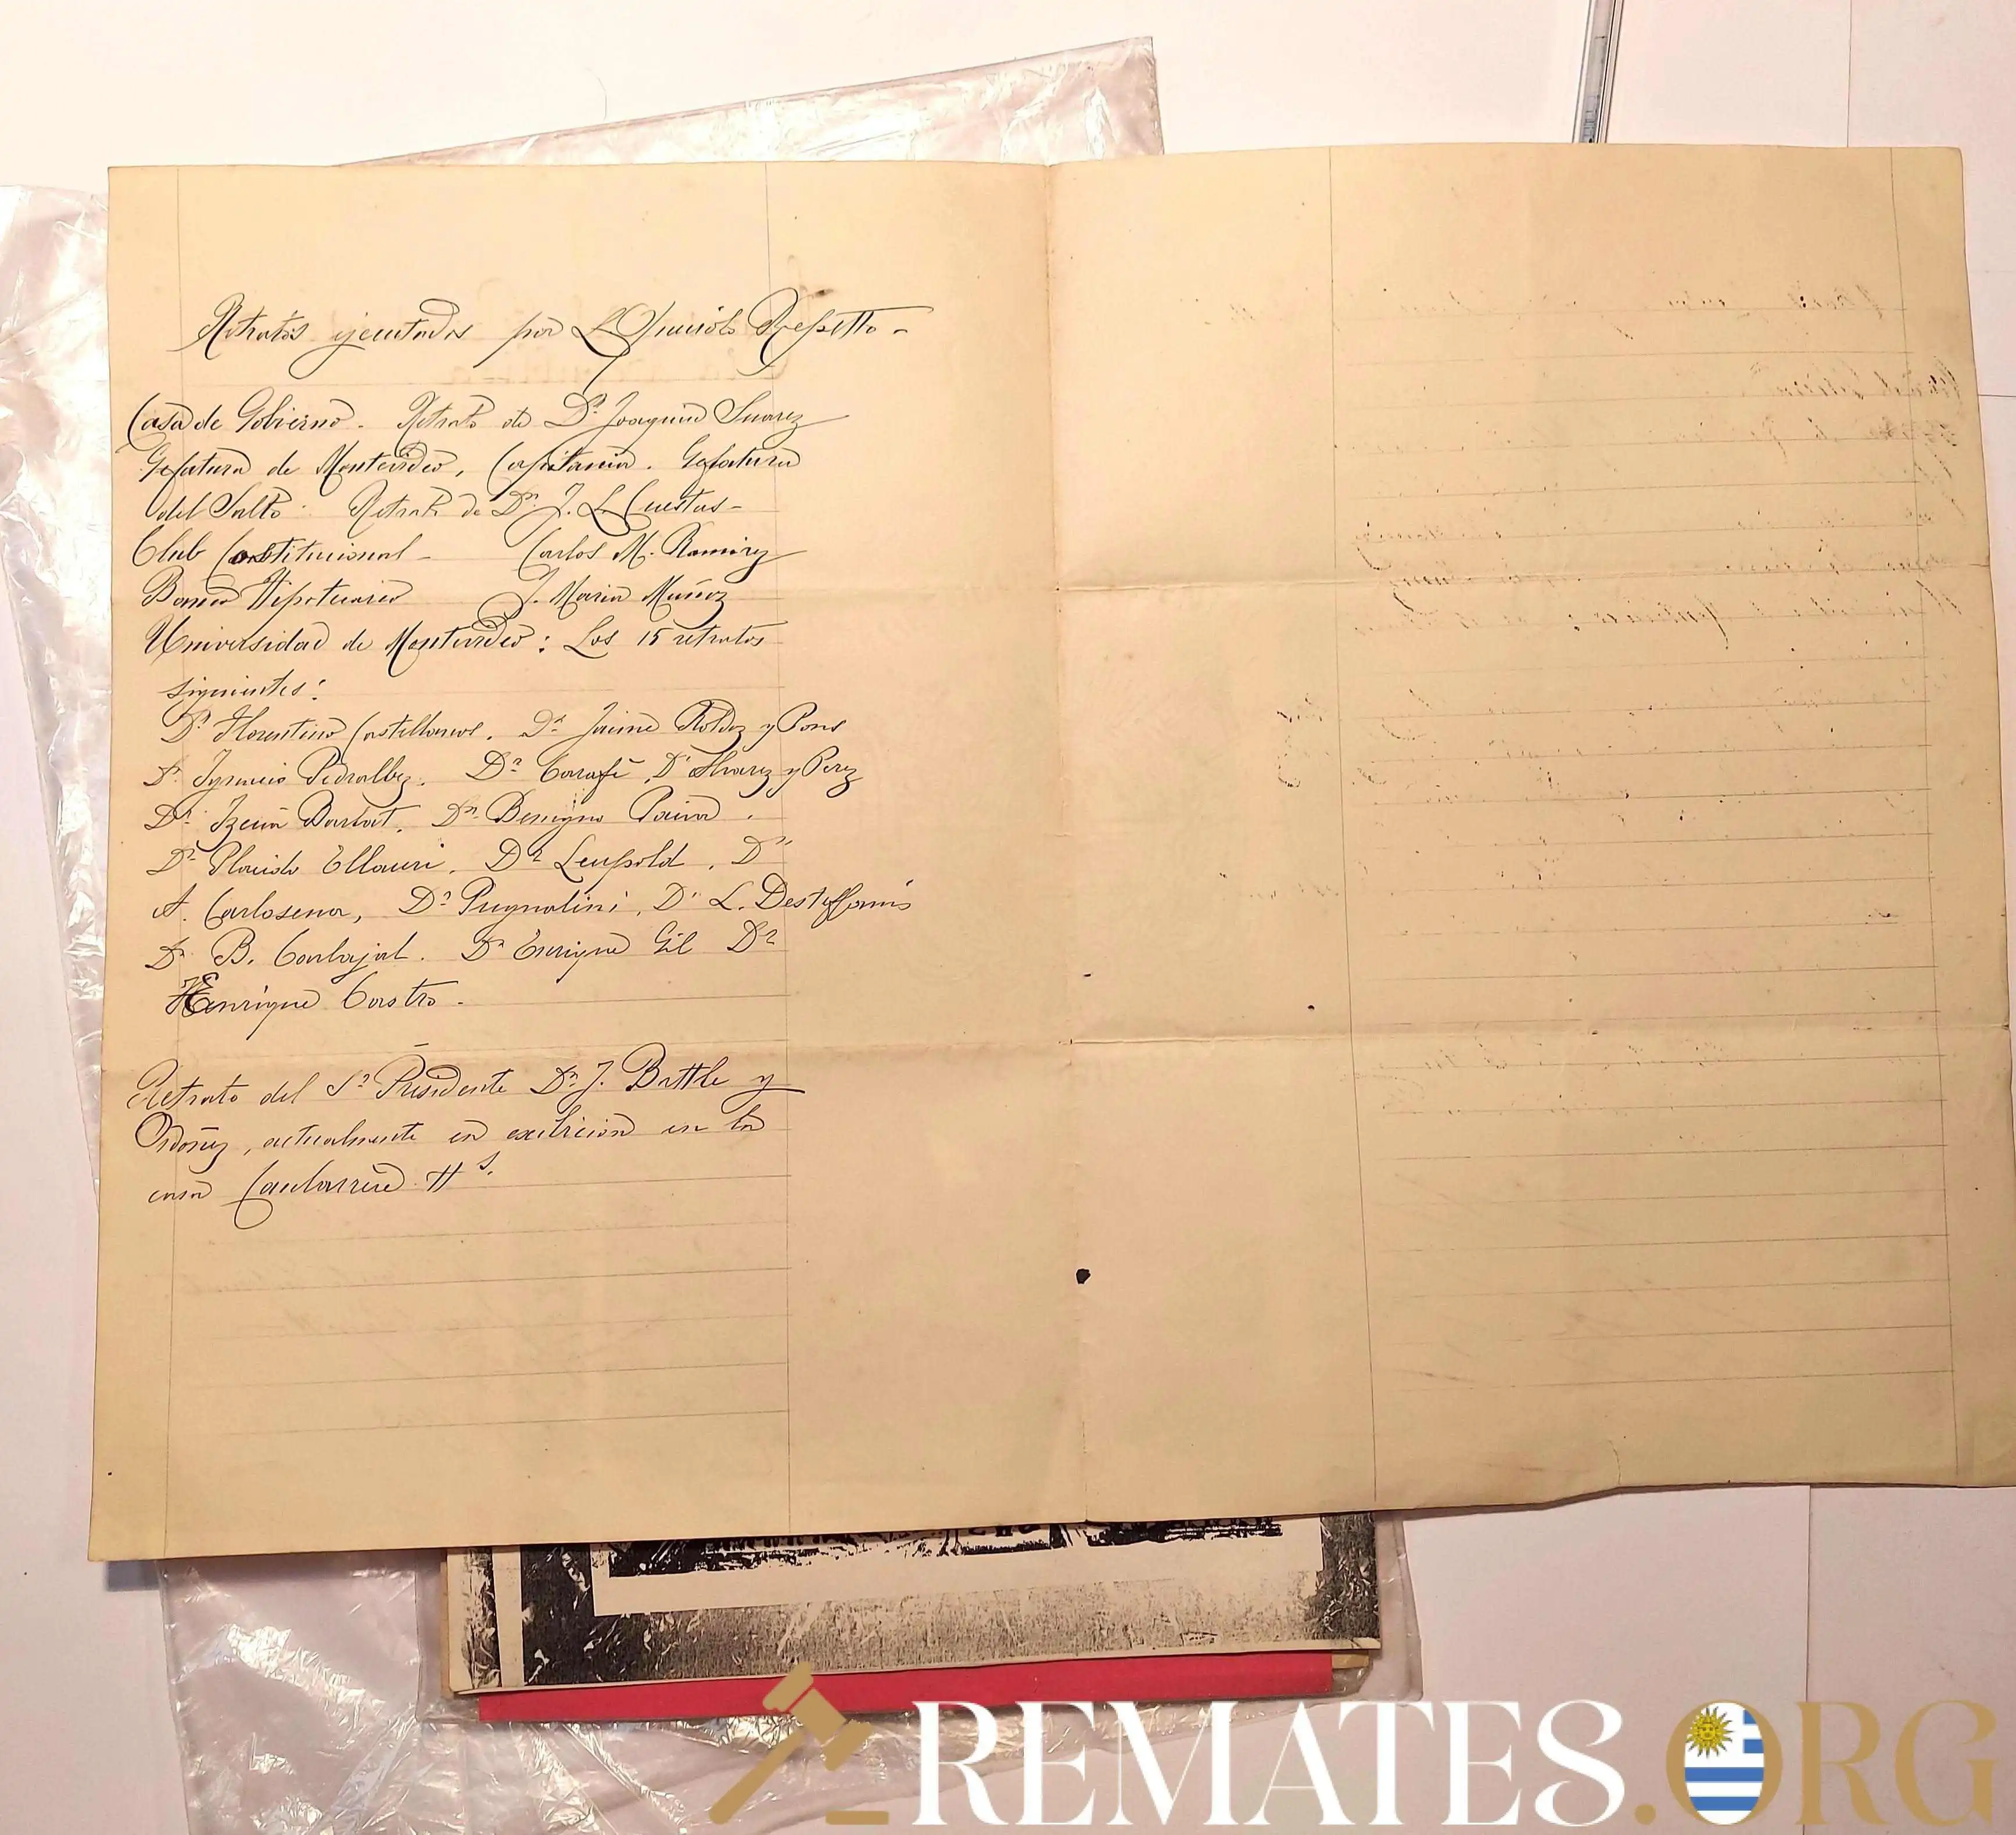 Retratos ejecutados por L. Quirolo Repetto -
Casa de Gobierno. Retrato de Dn Joaquin Suarez
Gefatura de Montevideo, Capitania. Gefatura
del Salto: Retrato de Dn J. L. Cuestas -
Club Constitucional - Carlos M. Ramirez
Banco Hipotecario J. Maria Muñoz
Universidad de Montevideo: Los 15 retratos
siguientes:
Dr Florentino Castellanos. Dr Jaime Roldoz y Pons
Dr Ignacio Pedralbez. Dr Carafi, Dr Alvarez y Perez
Dr Barbat. Dn Benigno Paiva.
Dr Placido Ellauri. Dr Leupold, Dn
A. Carlosena, Dr Pugnalini, Dr L. Desteffanis
Dr B. Carbajal. Dr Enrique Gil Dr
Henrique Castro -
Retrato del Sr Presidente Dn J. Battle y
Ordoñez, actualmente en exibicion en la
casa Hs.
REMATES.ORG